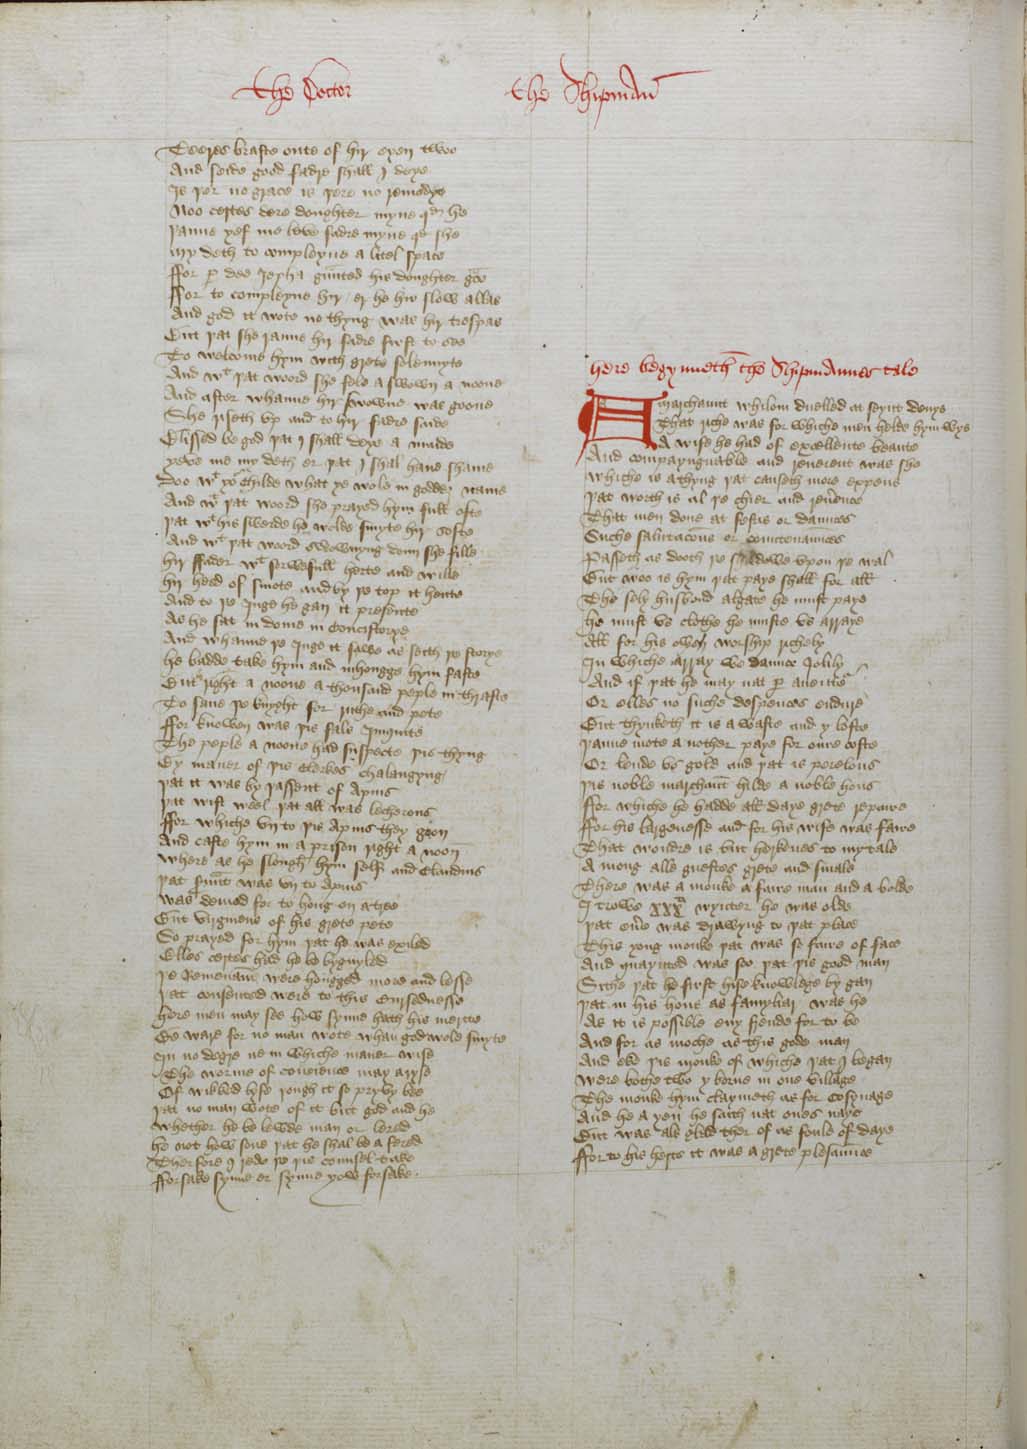 The Doctor
The Shipman
Teeres braste oute of hir eyen two
And seide good fadre shall I deye
Is þer no grace is þere no remedye
Noo certes dere doughter myne qd he
þanne yef me leve fadre myne qd she
My deth to compleyne a litel space
ffor p dee Jepha graunted his doughter gce
ffor to compleyne hir er he hir slow allas
And god it wote no thyng was hir trespas
But þat she ranne hir fadre first to see
To welcome hym with grete solemnyte
And wt þat woord she fele a swown a noone
And after whanne hir swowne was goone
She riseth vp and to hir fadre seide
Blissed be god þat I shall deye a maide
yeve me my deth er þat I shal have shame
Doo wt yor childe what ye wole in goddes name
And wt þat woord she prayed hym full ofte
þat wt his swerde he wolde smyte hir softe
And wt þat woord swownyng doun she fille
hir ffader wt sorwefull herte and wille
hir heed of smote and by þe top it hente
And to þe Juge he gan it presente
As he sat in dome in Concistorye
And whanne þe Juge it sawe as seith þe storye
he badde take hym and anhongge hym faste
But right a noone a thousand peple in thraste
To save þe knyght for rithe and pete
ffor knowen was þis fals Iniquite
The peple a noone had suspecte þis thyng
By maner of þis Clerkes chalangyng
þat it was by þassent of Apius
þat wist weel þat all was lecherous
ffor whiche vn to þis Apius they goon
And caste hym in a prison right a noon
Where as he slough hym self and Claudius
þat sruant was vn to Apius
was demed for to hong on a tree
But virgineus of his grete pete
So prayed for hym þat he was exiled
Elles certes had he be bygyled
þe Remenant were hongged more and lesse
þat consented were to this Cursednesse
here men may see how synne hath his merite
Be ware for no man wote whan god wole smyte
In no degre ne in whiche maner wise
The worme of concience may aryse
Of wikked lyfe þough it so pryvy bee
þat no man wote of it but god and he
whether he be lewde man or lered
he not how sone þat he shal be a fered
Therfore I rede yo þis counsel take
fforsake synne er synne yow forsake
here begynneth the Shipmannes tale
A marchaunt whilom duelled at seynt denys
That riche was for whiche men helde hym wys
A wife he had of excellente beaute
And compaynguable and reuerent was she
whiche is a thyng þat causeth more expens
þat worth is al þe chier and reuence
That men done at festis or daunces
Suche salutacons or countenaunces
Passeth as dooth þe shadowe vpon þe wal
But woo is hym þat paye shall for all
The sely husbond algate he must paye
he must vs clothe he muste vs arraye
All for his owen worship richely
In whiche array we daunce Jolily
And if þat he may nat p auentre
Or elles no suche despences endure
But thynketh it is a waste and y loste
þanne mote a nother paye for oure coste
Or lende vs gold and þat is perelous
þis noble marchaunt hilde a noble hous
ffor whiche he hadde all daye grete repaire
ffor his largenesse and for his wife was faire
That wondre is but herkenes to my tale
A mong alle guestes grete and smale
There was a monke a faire man and a bolde
I trowe xxxti wynter he was olde
þat eue was drawyng to þat place
This yong monke þat was so faire of face
Aqueynted was soo þat þis good man
Sithe þat he first hise knowlege by gan
þat in his hous as famyliar was he
As it is possible eny frende for to be
And for as moche as this gode man
And eke þis monke of whiche þat I began
were bothe two y borne in one village
The monke hym claymeth as for cosynage
And he a yen he saith nat ones naye
But was als glad ther of as foule of daye
ffor to his herte it was a grete plesaunce